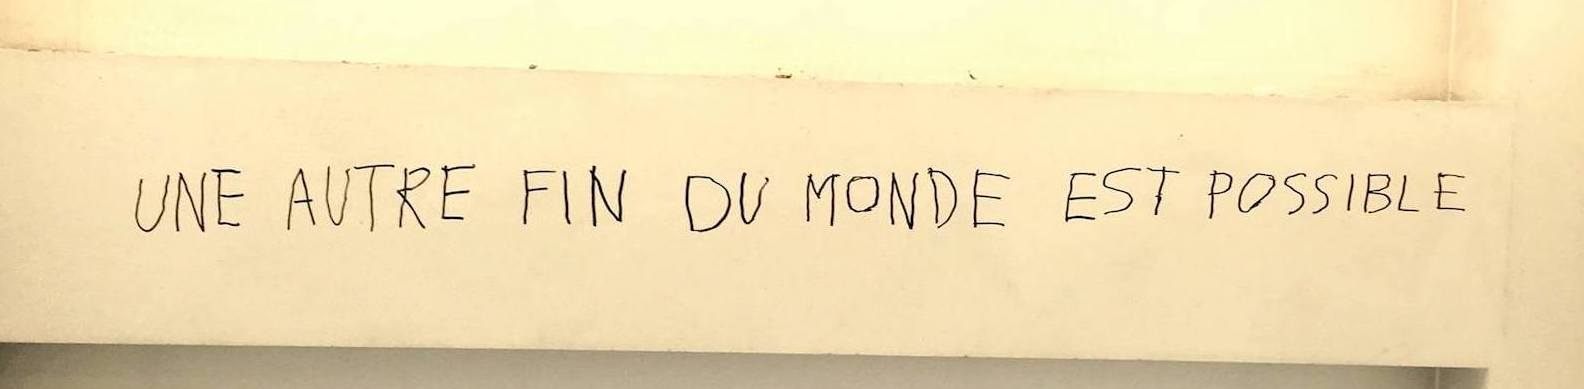 UNE AUTRE FIN DU MONDE EST POSSIBLE